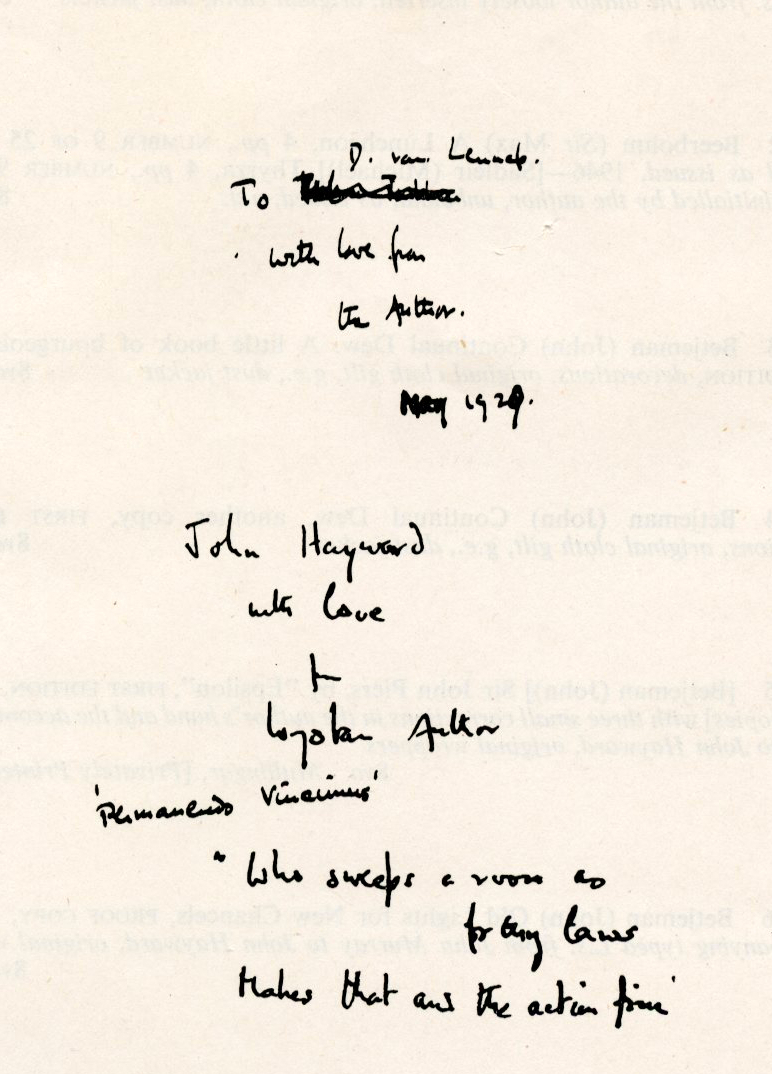 D. van Lennep.
To
with love from
the Author.
May 1929.
John Hayward
with love
from
Author
'Permanendo Vincimus'
"Who sweeps a room as
for thy laws
Makes that and the action fine"